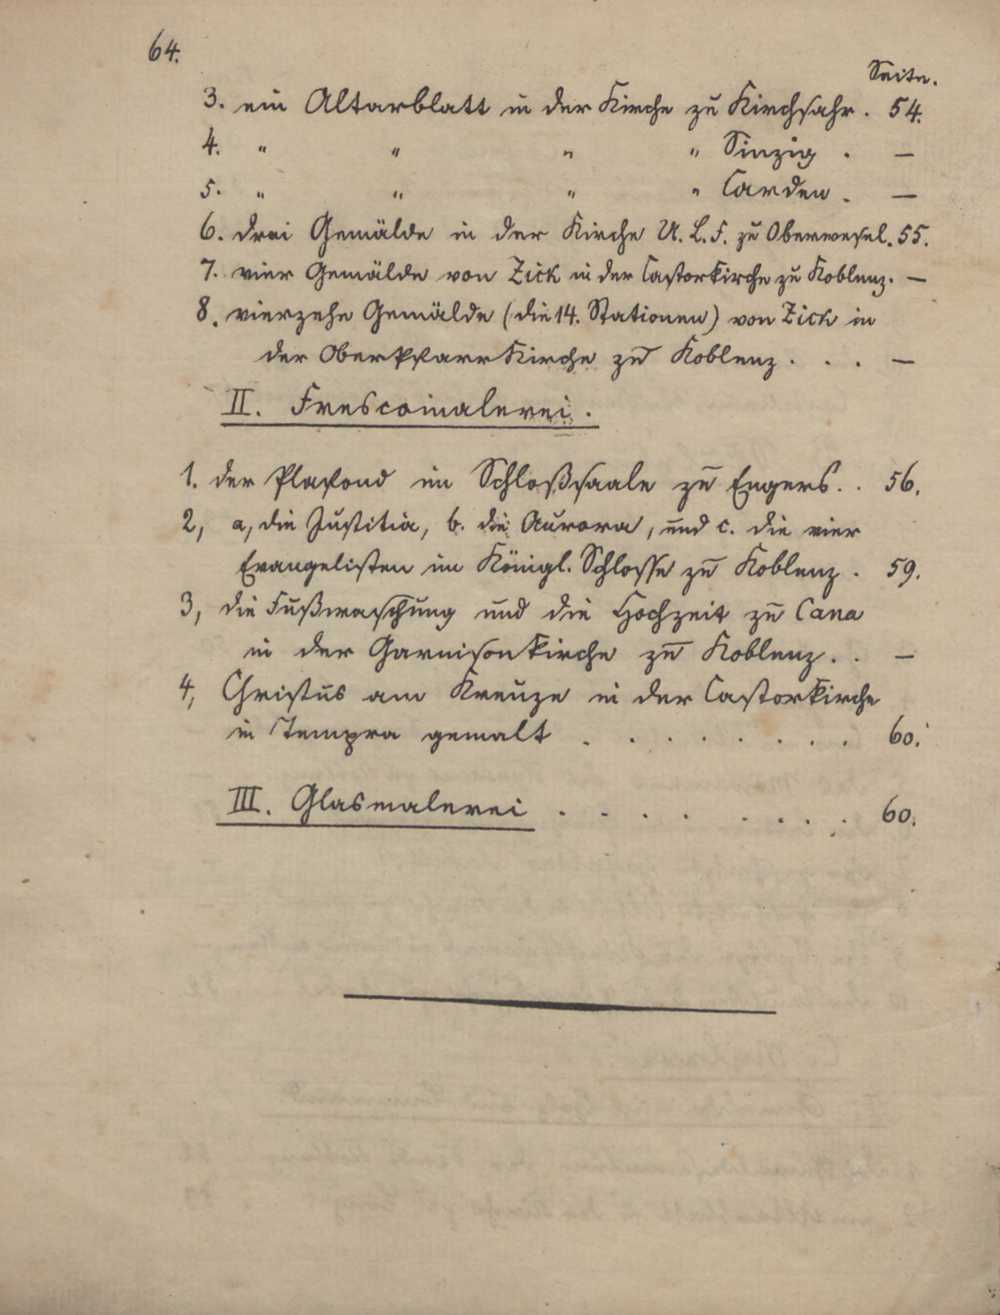 64.
Seite.
3. ein Altarblatt in der Kirche zu Kirchsahr . 54.
4. " " " " Sinzig . —
5. " " " " Carden . —
6. drei Gemälde in der Kirche U. L. F. zu Oberwesel. 55.
7. vier Gemälde von Zick in der Castorkirche zu Koblenz. —
8. vierzehn Gemälde (die 14. Stationen) von Zick in
der Oberpfarrkirche zu Koblenz . . . —
II. Frescomalerei.
1. der Plafond im Schloßsaale zu Engers. . 56.
2, a, die Justitia, b. die Aurora, und c. die vier
Evangelisten im Königl. Schlosse zu Koblenz . 59.
3, die Fußwaschung und die Hochzeit zu Cana
in der Garnisonkirche zu Koblenz. . —
4, Christus am Kreuze in der Castorkirche
in Tempra gemalt . . . . . . . . 60.
III. Glasmalerei . . . . . . . . 60.